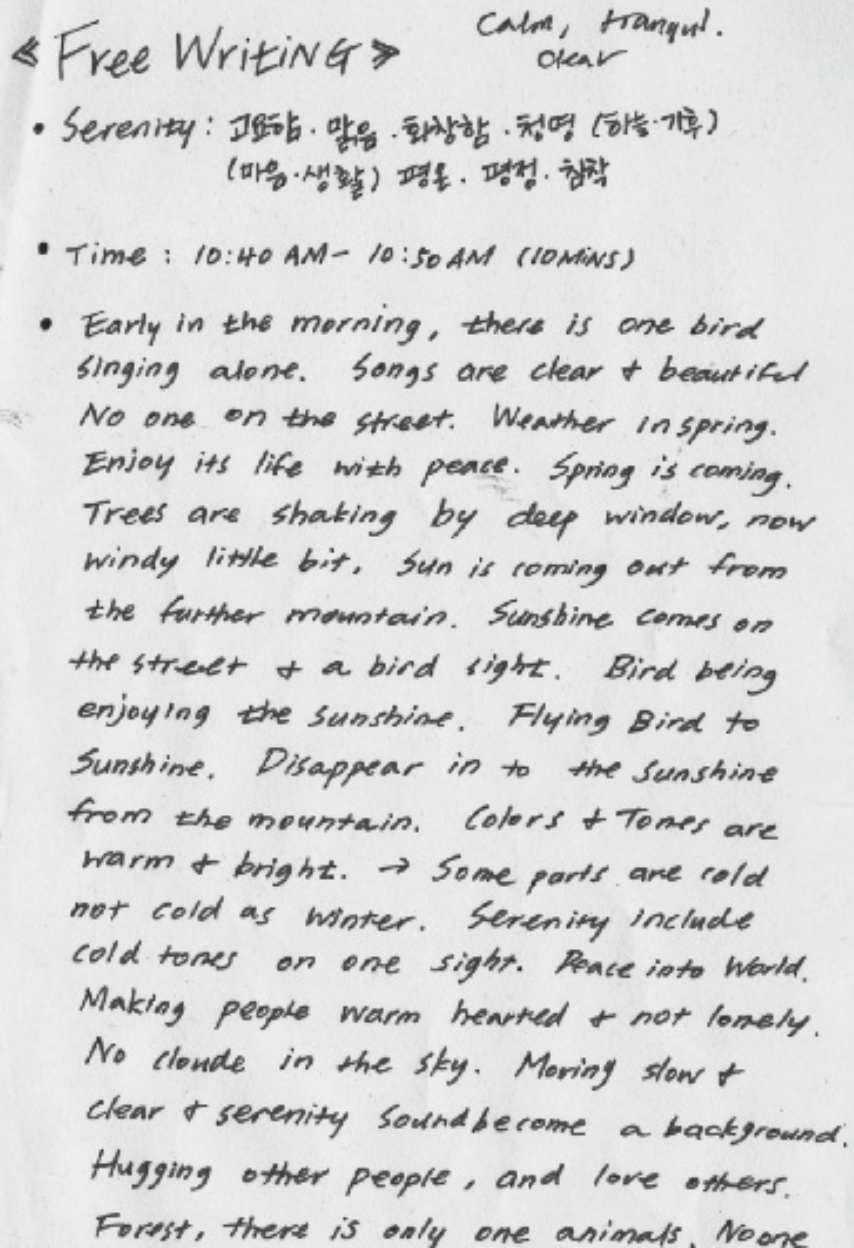 Calm, tranquil.
clear
《 Free WritiNG 》
• Serenity : 고요함 · 맑음 · 화창함 · 청명 (하늘·기후)
(마음·생활) 평온 · 평정 · 침착
• Time : 10:40 AM - 10:50 AM (10MiNS)
• Early in the morning, there is one bird
singing alone. Songs are clear & beautiful
No one on the street. Weather in spring.
Enjoy its life with peace. Spring is coming.
Trees are shaking by deep window, now
windy little bit. Sun is coming out from
the further mountain. Sunshine comes on
the street & a bird sight. Bird being
enjoying the sunshine. Flying Bird to
Sunshine. Disappear in to the sunshine
from the mountain. Colors & Tones are
warm & bright. → Some parts are cold
not cold as winter. Serenity include
cold tones on one sight. Peace into World.
Making people warm hearted & not lonely.
No cloude in the sky. Moving slow &
clear & serenity sound become a background.
Hugging other people, and love others.
Forest, there is only one animals. No one